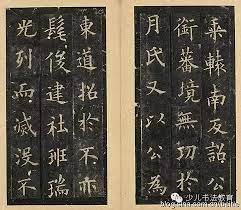 轅南反詔公
銜蕃境無功於
月氏又以公為
東道招於不亦
髦俊建社班瑞
光列而滅没不
少儿书法教育